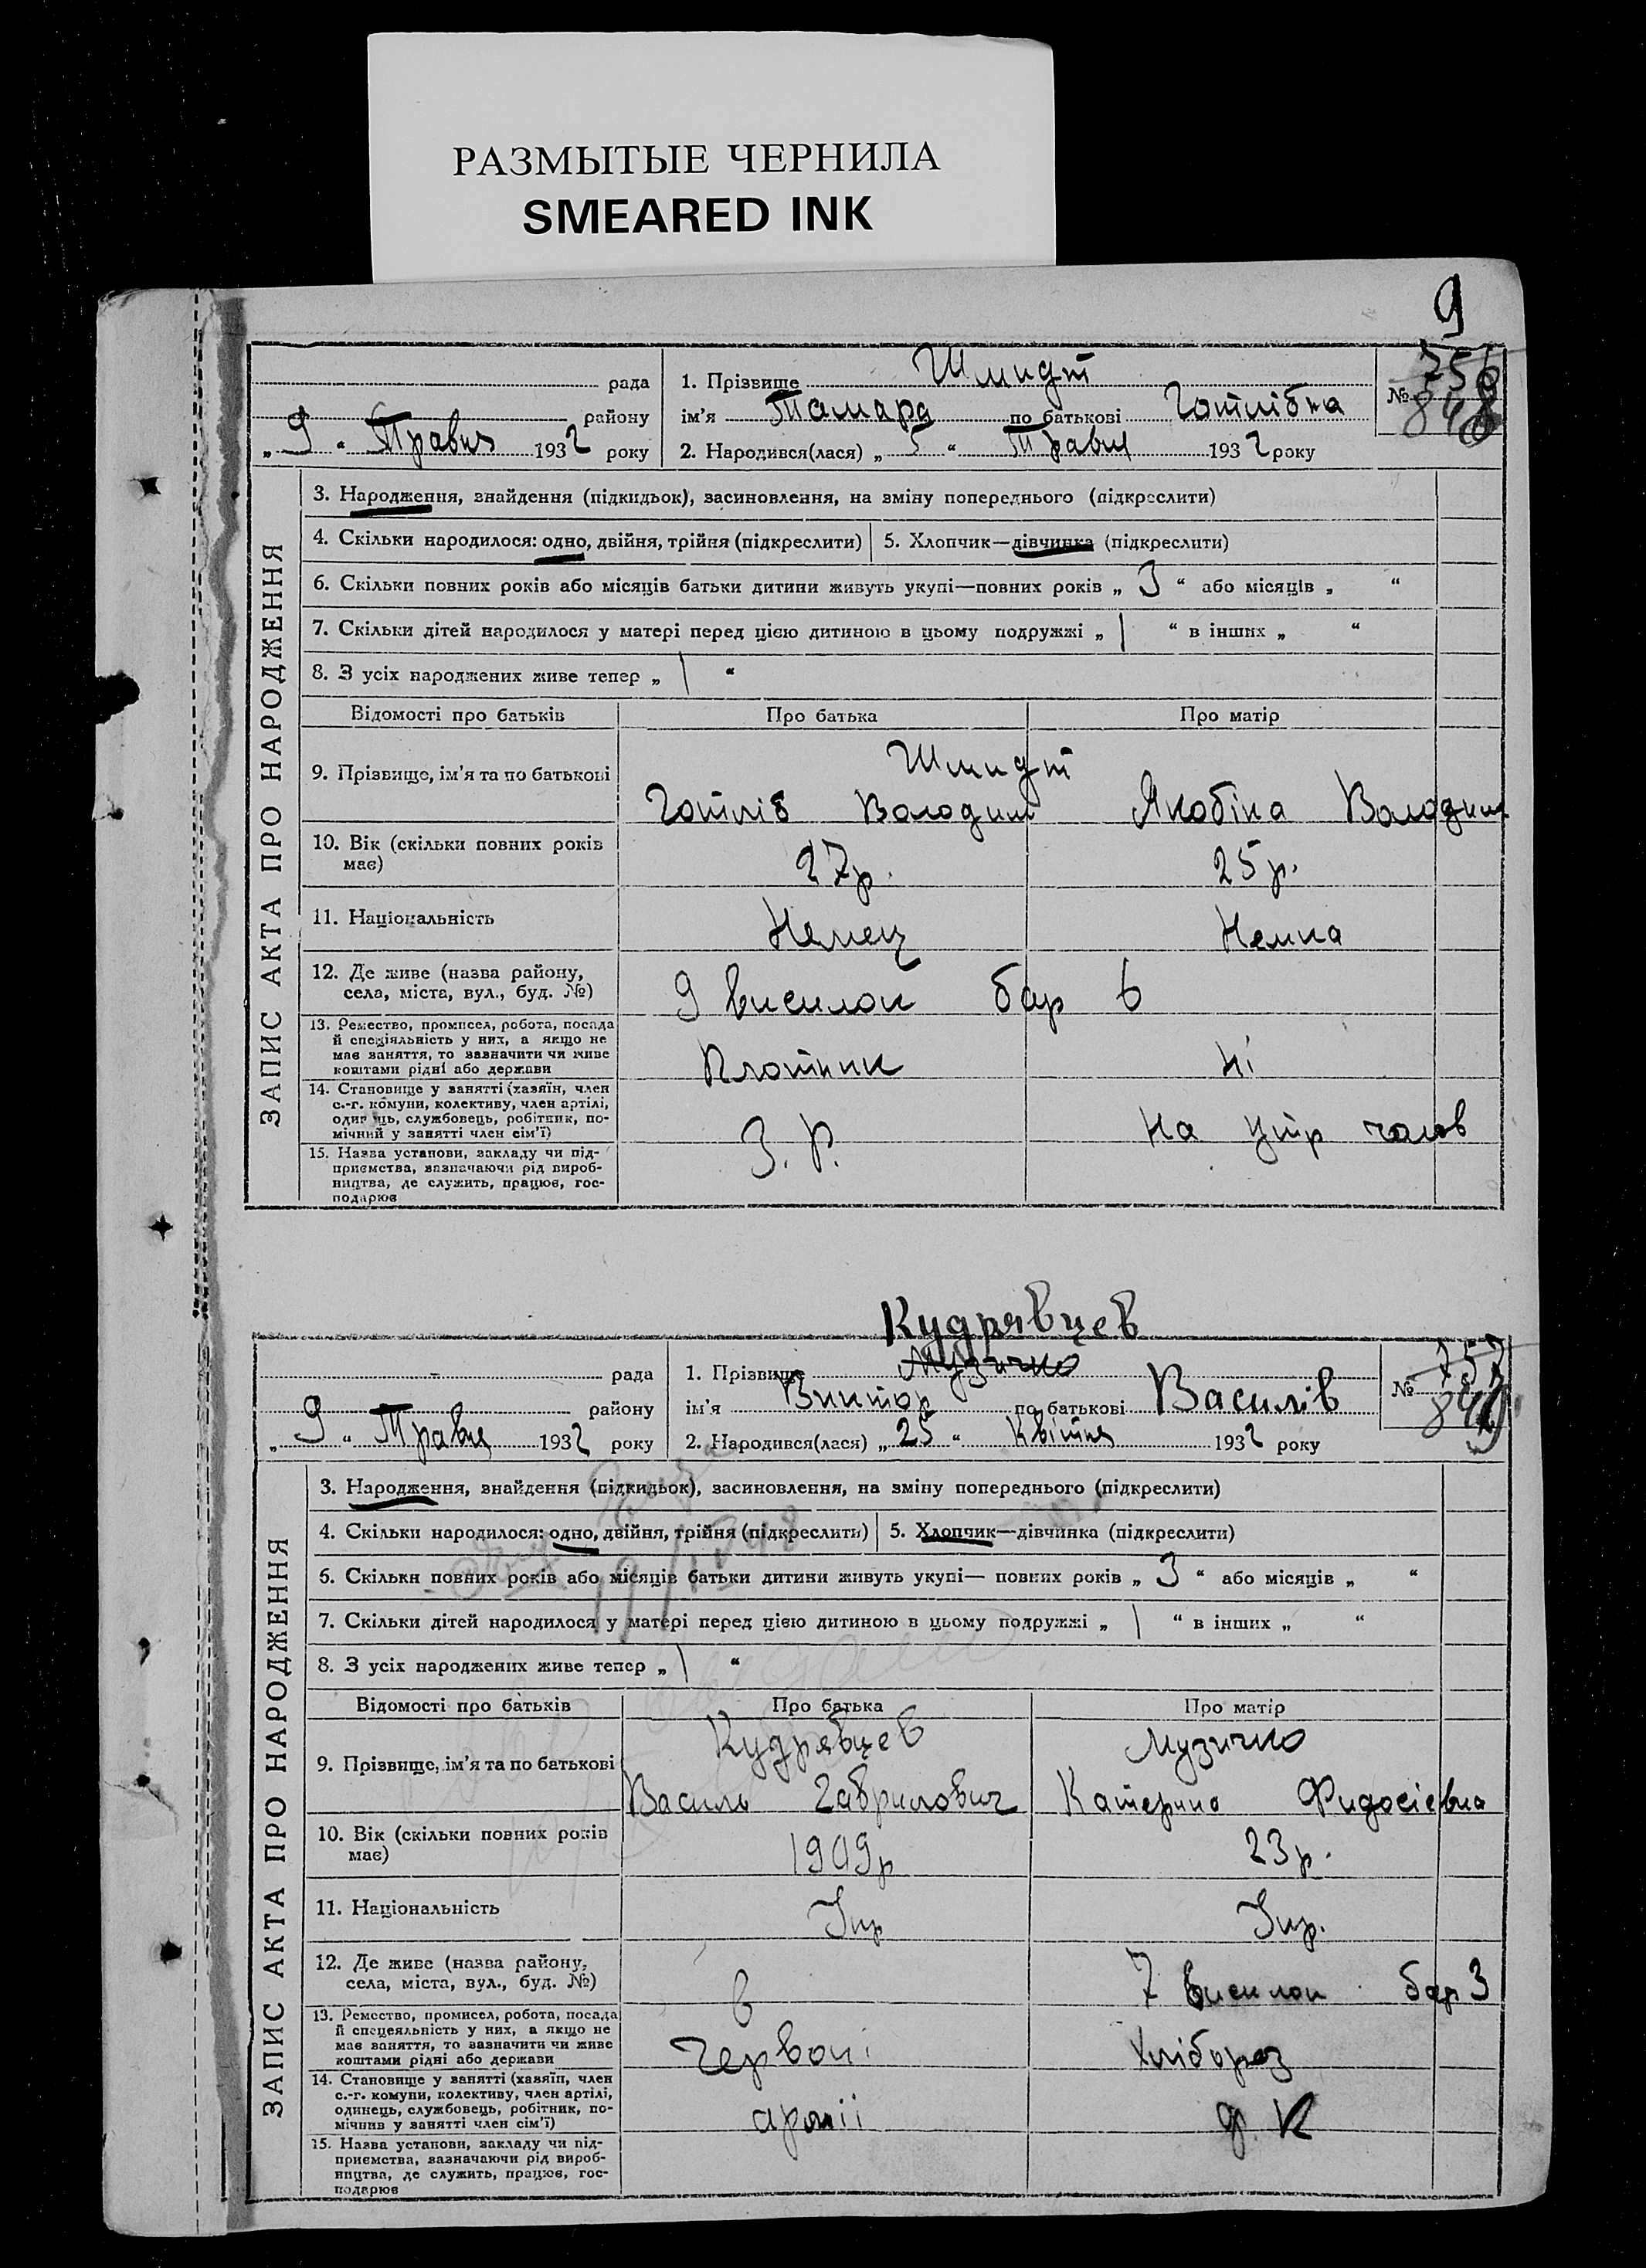 РАЗМЫТЫЕ ЧЕРНИЛА
SMEARED INK
9
рада
району
„ 9 “ Травня 1932 року
1. Прізвище Шмидт
ім’я Тамара по батькові Готлібна
2. Народився(лася) „ 5 “ Травня 1932 року
№ 756
848
ЗАПИС АКТА ПРО НАРОДЖЕННЯ
3. Народження, знайдення (підкидьок), засиновлення, на зміну попереднього (підкреслити)
4. Скільки народилося: одно, двійня, трійня (підкреслити) 5. Хлопчик—дівчинка (підкреслити)
6. Скільки повних років або місяців батьки дитини живуть укупі—повних років „ 3 “ або місяців „ “
7. Скільки дітей народилося у матері перед цією дитиною в цьому подружжі „ 1 “ в інших „ “
8. З усіх народжених живе тепер „ 1 “
Відомості про батьків Про батька Про матір
9. Прізвище, ім’я та по батькові
Шмидт
Готліб Володим Якобіна Володим
10. Вік (скільки повних років має)
27р. 25р.
11. Національність
Немец Немка
12. Де живе (назва району, села, міста, вул., буд. №)
9 висилок бар 6
13. Ремество, промисел, робота, посада
й спеціяльність у них, а якщо не
має заняття, то зазначити чи живе
коштами рідні або держави
Плотник Ні
14. Становище у занятті (хазяїн, член
с.-г. комуни, колективу, член артілі,
одинець, службовець, робітник, по-
мічний у занятті член сім’ї)
З. Р. На утр
15. Назва установи, закладу чи під-
приємства, зазначаючи рід вироб-
ництва, де служить, працює, гос-
подарює
Кудрявцев
рада
району
„ 9 “ Травня 1932 року
1. Прізвище Музичко
ім’я Виктор по батькові Василів
2. Народився(лася) „ 25 “ Квітня 1932 року
№ 757
849
ЗАПИС АКТА ПРО НАРОДЖЕННЯ
3. Народження, знайдення (підкидьок), засиновлення, на зміну попереднього (підкреслити)
4. Скільки народилося: одно, двійня, трійня (підкреслити) 5. Хлопчик—дівчинка (підкреслити)
6. Скільки повних років або місяців батьки дитини живуть укупі— повних років „ 3 “ або місяців „ “
7. Скільки дітей народилося у матері перед цією дитиною в цьому подружжі „ 1 “ в інших „ “
8. З усіх народжених живе тепер „ 1 “
Відомості про батьків Про батька Про матір
9. Прізвище, ім’я та по батькові
Кудрявцев Музичко
Василь Гаврилович Катерина Фидосієвна
10. Вік (скільки повних років має)
1909р 23р.
11. Національність
Укр Укр.
12. Де живе (назва району, села, міста, вул., буд. №)
в 7 висилок бар 3
13. Ремество, промисел, робота, посада
й спецеяльність у них, а якщо не
має заняття, то зазначити чи живе
коштами рідні або держави
Червоні Хлібороз
14. Становище у занятті (хазяїн, член
с.-г. комуни, колективу, член артілі,
одинець, службовець, робітник, по-
мічнив у занятті член сім’ї)
армії ф. К
15. Назва установи, закладу чи під-
приємства, зазначаючи рід вироб-
ництва, де служить, працює, гос-
подарює